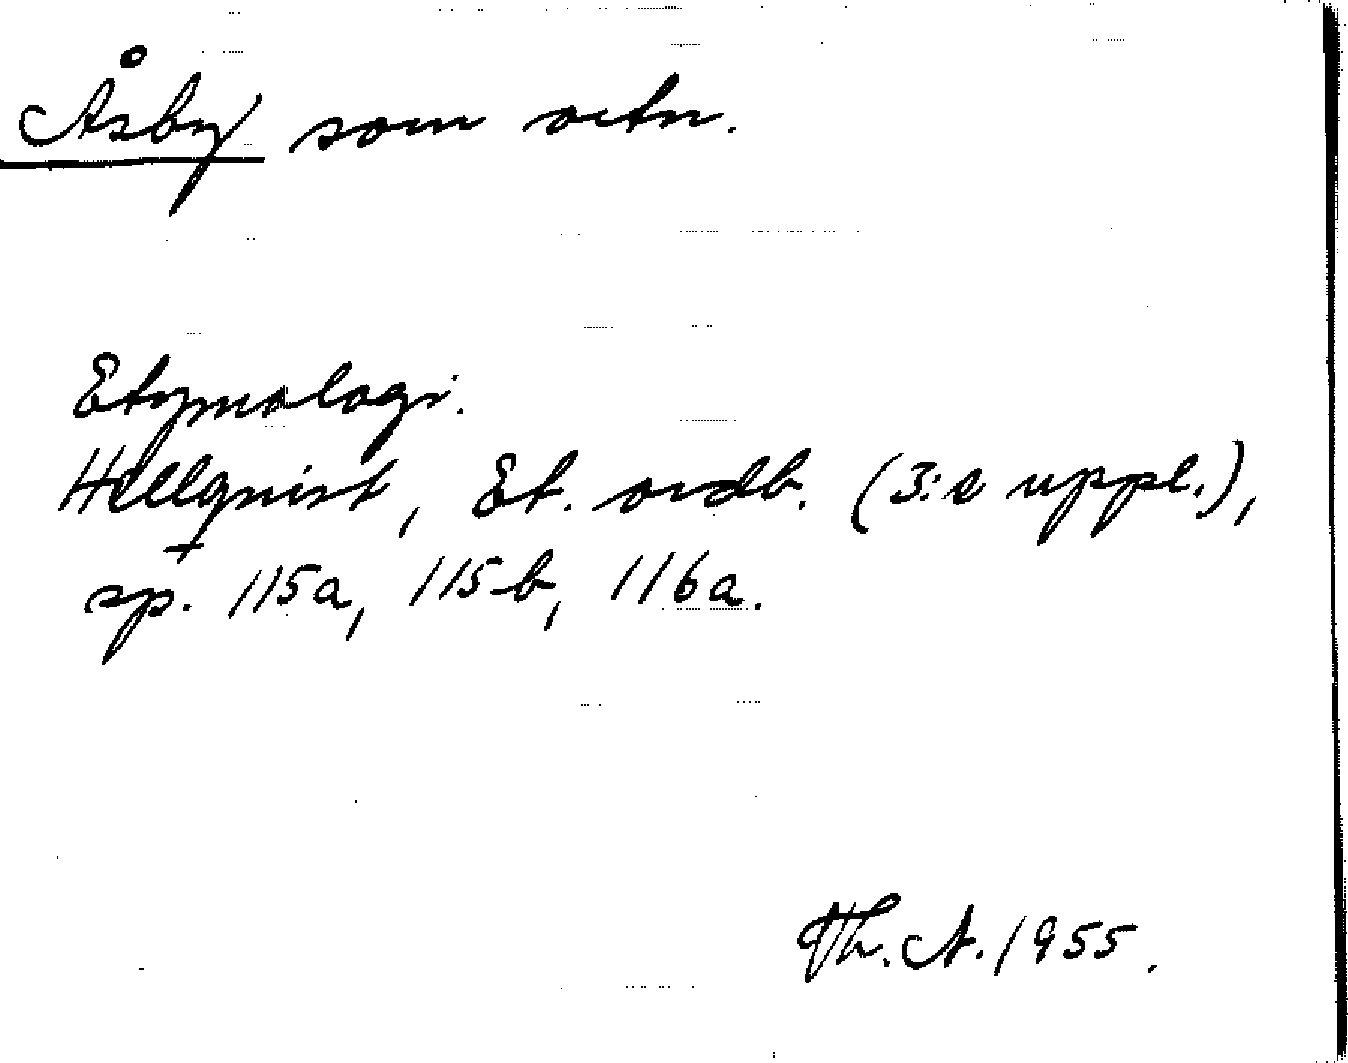 Åsby som ortn.
Etymologi.
Hellquist, Et. ordb. (3:e uppl.),
sp. 115a, 115b, 116a.
Th. A. 1955.